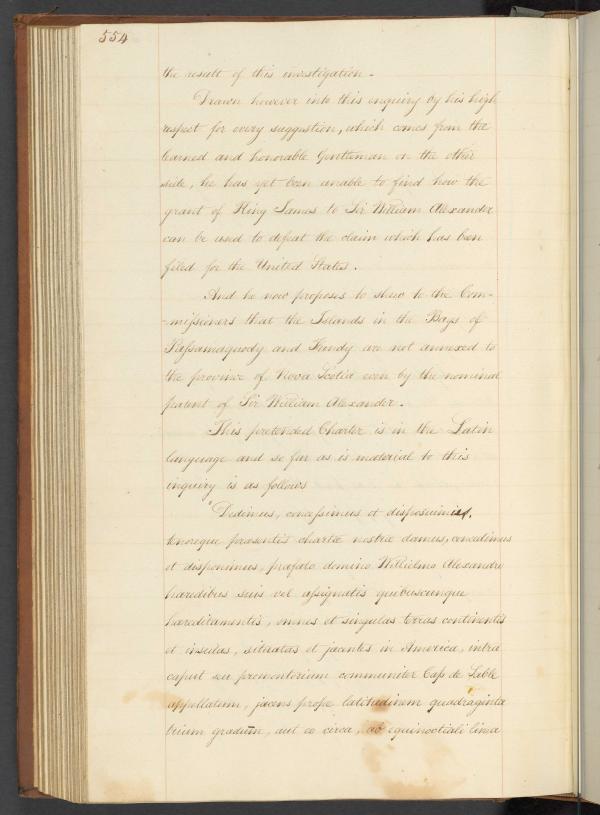 554
the result of this investigation.
Drawn however into this enquiry by his high
respect for every suggestion, which comes from the
learned and honorable Gentleman on the other
side, he has yet been unable to find how the
grant of King James to Sir William Alexander
can be used to defeat the claim which has been
filed for the United States.
And he now proposes to shew to the Com-
-missioners that the Islands in the Bays of
Passamaquody and Fundy are not annexed to
the province of Nova Scotia even by the nominal
patent of Sir William Alexander.
This pretended Charter is in the Latin
language and so far as is material to this
inquiry is as follows
"Dedimus, concessimus et disposuimus,
tenoreque præsentis chartæ nostræ damus, concedimus
et disponimus, præfato domino Willielmo Alexandro
hæredibus suis vel assignatis quibuscunque
hæreditamentis, omnes et singulas terras continentis
et insulas, situatas et jacentes in America, intra
caput seu promontorium communiter Cap de Sable
appellatum, jacens prope latitudinem quadraginta
trium gradum, aut eo circa, ab equinoctiali linea